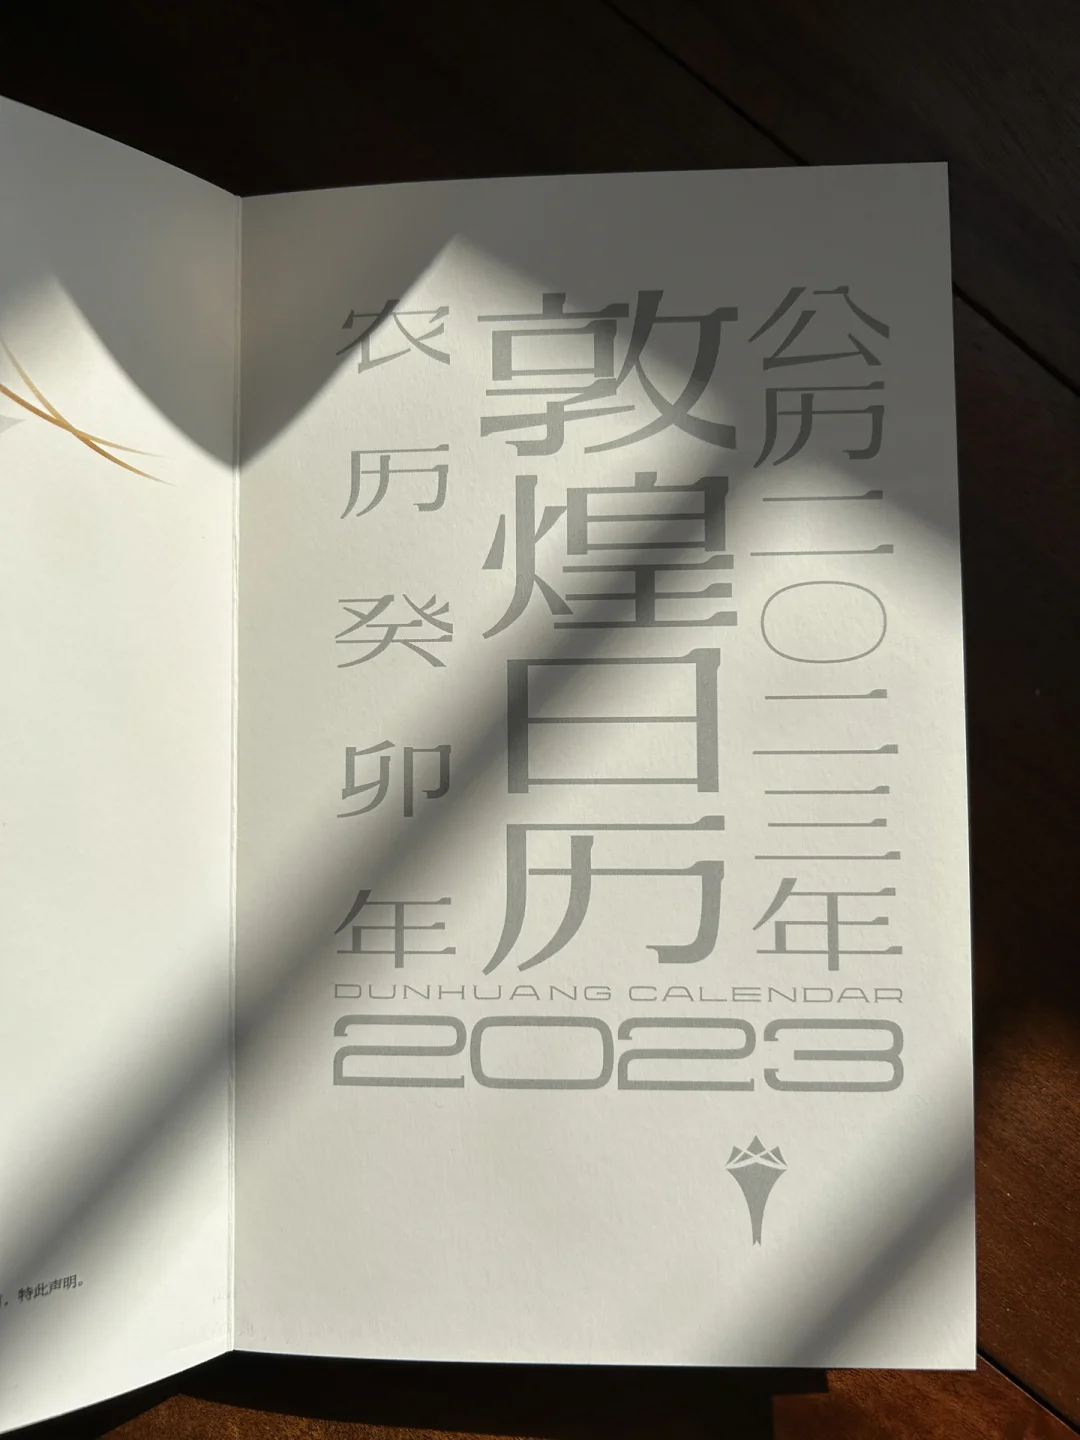 公历二〇二三年
敦煌日历
农历癸卯年
DUNHUANG CALENDAR
2023
特此声明。